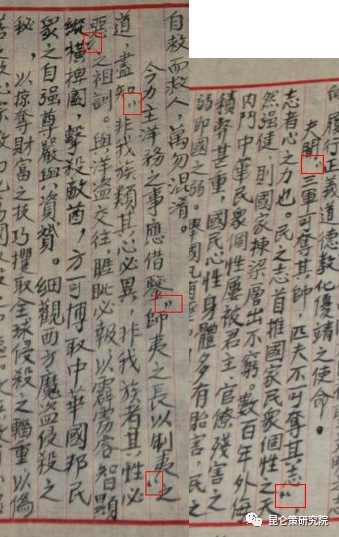 履行正義道德教化優靖之使命。
夫聞：“三軍可奪其帥，匹夫不可奪其志”，
志者心之力也。民之志首推國家民眾個性之天
然强健，則國家棟梁層出不窮。數百年外侮
内鬥中華民眾個性屢被君主官僚殘害之
積弊甚重，國民心性身體多有胎害，民
弱即國之弱。
自救而救人，萬勿混淆。
今力主洋務之事應借鑒“師夷之長以制夷”之
道，盡知“非我族類其心必異，非我族者其性必
惡”之祖訓。與洋盜交往，睚眦必報以霹靂睿智顯
縱橫捭闔，擊殺敵酋，方可博取中華國邦民
眾之自强尊嚴與資質。細觀西方魔盜侵殺之
秘，以掠奪財富之技巧攫取全球侵殺之輜重以偽
昆仑策研究院